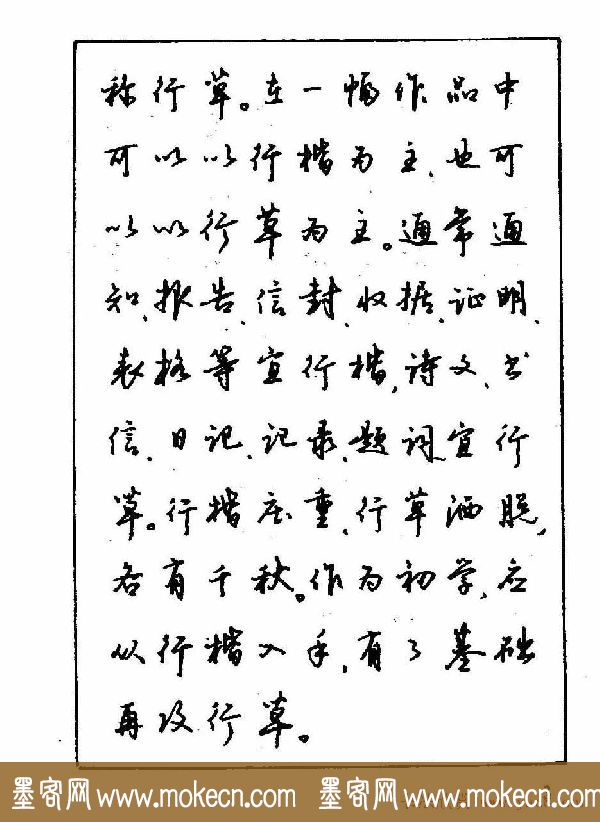 称行草。在一幅作品中
可以以行楷为主、也可
以以行草为主。通常通
知、报告、信封、收据、证明、
表格等宜行楷，诗文、书
信、日记、记录、题词宜行
草。行楷庄重，行草洒脱，
各有千秋。作为初学，应
从行楷入手，有了基础
再攻行草。
墨客网 www.mokecn.com 墨客网 www.mokecn.com